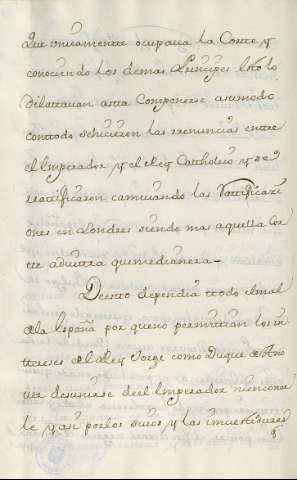 que unicamente ocupava la Corte, y
conociendo los demas Principes que lo
dilattavan asta componerse a su modo
conttodo se hicieron las rrenuncias entre
el Imperador, y el Rey Cattholico y se
rrattificaron camviando las Rattificazi
ones en Londres siendo mas aquella Cor
tte adverttra que medianera
De esto dependia ttodo el mal
de la España por que no permittian los in
ttereses de el Rey Jorge como Duque de Ano
ver desunirse de el Imperador ni enconar
le y asi por los suios y las imvestiduras